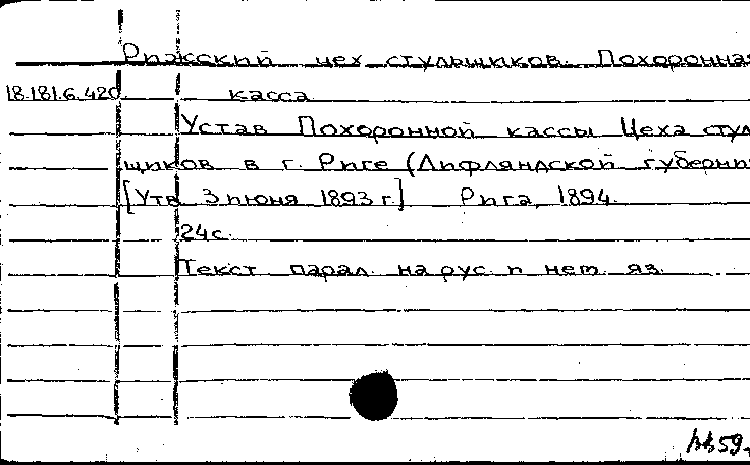 Рижский цех стульщиков. Похоронная
18.181.6.420. касса
Устав Похоронной кассы Цеха стуль
щиков в г. Риге (Лифляндской губернии
[Утв. 3 июня 1893 г.] Рига, 1894.
24с.
Текст парал. на рус. и нем. яз.